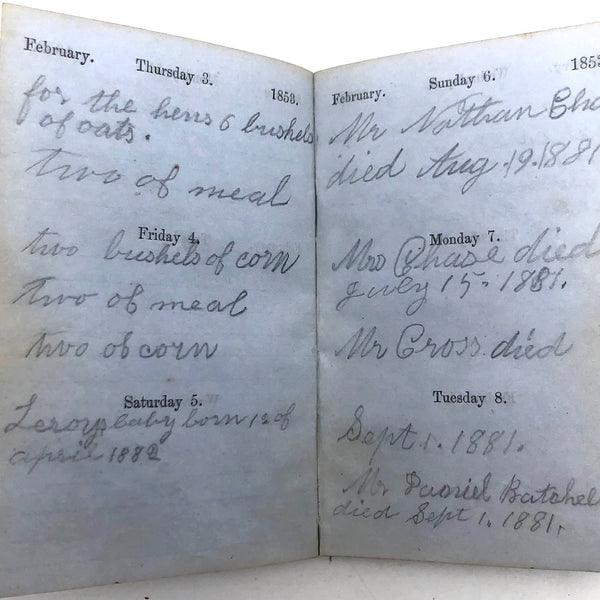 February. Thursday 3. 1853.
for the hens 6 bushels
of oats.
two of meal
Friday 4.
two bushels of corn
two of meal
two of corn
Saturday 5.
Leroys baby born 12 of
april 1882
February. Sunday 6. 1853
Mr Nathan Cha
died Aug. 19. 1881
Monday 7.
Mrs Chase died
july 15. 1881.
Mr Cross died
Tuesday 8.
Sept. 1. 1881.
Mr Daniel Batchel
died Sept 1. 1881.